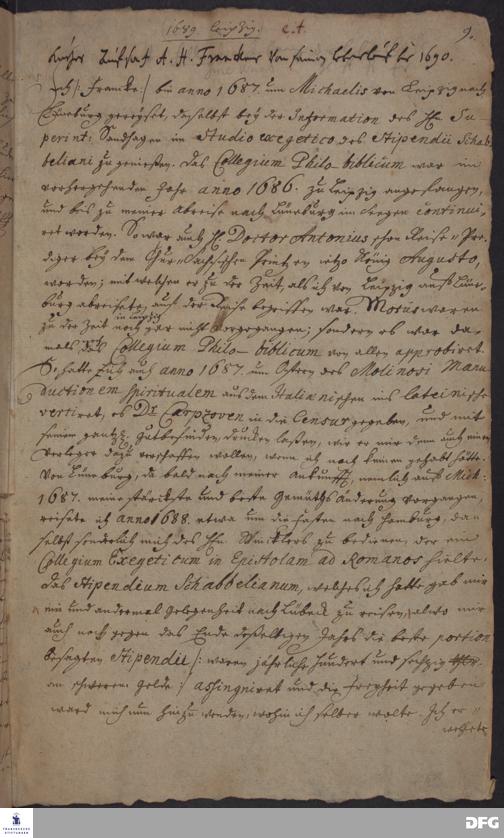 1689 Leipzig. c.t. 9.
Kurtzer Aufsatz A. H. Francken von seinem Lebenslauf bis 1690.
Ich /: Francke :/ bin anno 1687. um Michaelis von Leipzig nach
Lüneburg gereyset, daselbst bey der Information des H. Su-
perint: Sandhagen in Studio exegetico des Stipendii Schab-
beliani zu geniessen. Das Collegium Philo-biblicum war im
vorhergehenden Jahr anno 1686. zu Leipzig angefangen,
und bis zu meiner Abreise nach Lüneburg im Seegen continui-
ret worden. So war auch H. Doctor Antonius schon Reise-Pre-
diger bey dem Chur-Sächsischen Printzen itzo König Augusto,
worden; mit welchem er zu der Zeit, als ich von Leipzig auf Lüne-
burg abreisete, auf der Reise begriffen war. Motus waren
zu der Zeit in Leipzig noch gar nicht vorgegangen; sondern es war da-
mals das Collegium Philo-biblicum von allen approbiret.
So hatte ich auch anno 1687. um Ostern des Molinosi Manu-
ductionem Spiritualem aus dem Italiänischen ins lateinische
vertiret, es Dr Carpzoven in die Censur gegeben, und mit
seinem gantzen gutbefinden, drucken lassen, wie er mir denn auch einen
Verleger dazu verschaffen wollen, wenn ich noch keinen gehabt hätte.
Von Lüneburg, da bald nach meiner Ankunfft, nemlich auf Mich:
1687. meine stärckste und beste Gemüths Änderung vorgangen,
reisete ich anno 1688. etwa um die Fasten nach Hamburg, da-
selbst sonderlich mich des Hn. Wincklers zu bedienen, der ein
Collegium Exegeticum in Epistolam ad Romanos hielte.
Das Stipendium Schabbelianum, welches ich hatte gab mir
ein und andermal gelegenheit nach Lübeck zu reisen, alwo mir
auch noch gegen das Ende desselbigen Jahrs die beste portion
besagten Stipendii /: waren jährliche hundert und sechzig
an schwerem Gelde :/ assigniret und die freyheit gegeben
ward mich nun hinzu wenden, wohin ich selber wolte. Ich er-
wehlete
FRANCKESCHE STIFTUNGEN
DFG